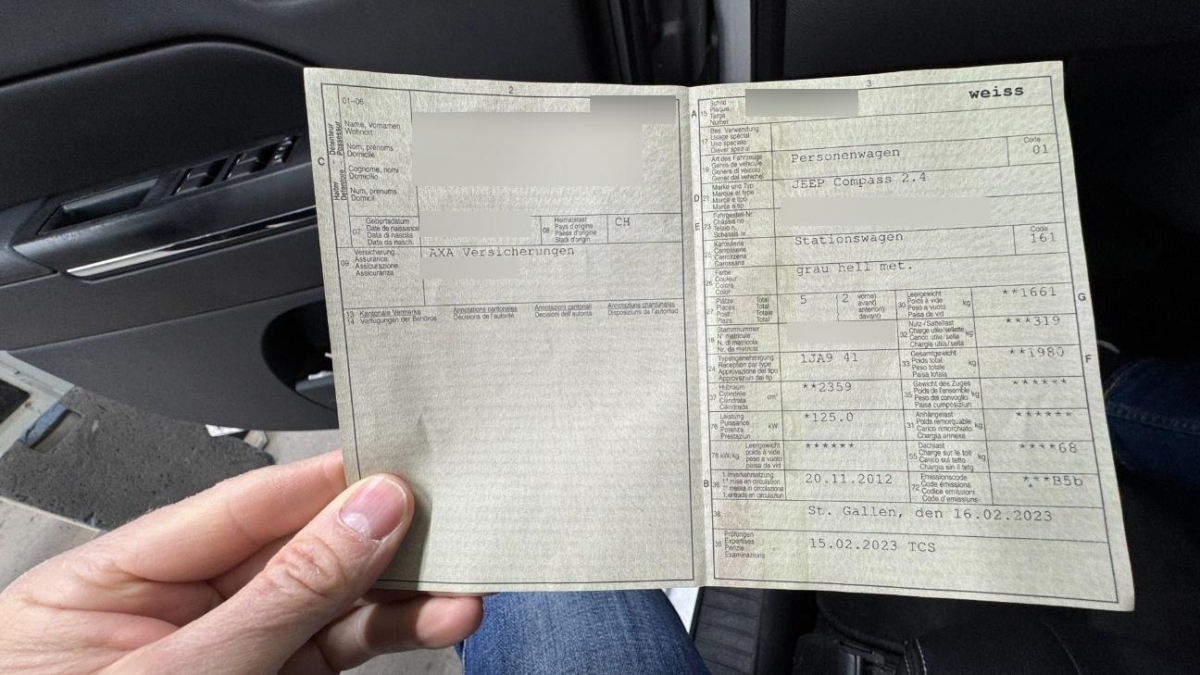 2
01-06
C
Halter - Détenteur
Detentore - Possessur
Name, Vornamen
Wohnort
Nom, prénoms
Domicile
Cognome, nomi
Domicilio
Num, prenums
Domicil
07
Geburtsdatum
Date de naissance
Data di nascita
Data da nasch.
08
Heimatstaat
Pays d'origine
Paese d'origine
Stadi d'origin
CH
09
Versicherung
Assurance
Assicurazione
Assicuranza
AXA Versicherungen
13
14
Kantonale Vermerke
Verfügungen der Behörde
Annotations cantonales
Décisions de l'autorité
Annotazioni cantonali
Decisioni dell'autorità
Annotaziuns chantunalas
Disposiziuns da l'autoritad
3
A
15
Schild
Plaque
Targa
Numer
weiss
17
Bes. Verwendung
Usage spécial
Uso speciale
Diever spezial
19
Art des Fahrzeugs
Genre de véhicule
Genere di veicolo
Gener dal vehichel
Personenwagen
Code
01
D
21
Marke und Typ
Marque et type
Marca e tipo
Marca e tip
JEEP Compass 2.4
E
23
Fahrgestell-Nr.
Châssis no
Telaio n.
Schassis nr.
25
Karosserie
Carrosserie
Carrozzeria
Carossaria
Stationswagen
Code
161
26
Farbe
Couleur
Colore
Color
grau hell met.
27
Plätze: Total
Places: Total
Posti: Totale
Plazs: Total
5
2
vorne)
avant)
anteriori)
davant)
30
Leergewicht
Poids à vide
Peso a vuoto
Paisa da vid
kg
**1661
G
18
Stammnummer
N° matricule
N. di matricola
Nr. da matricla
32
Nutz-/Sattellast
Charge utile/sellette
Carico utile/sella
Chargia utila/sella
kg
***319
24
Typengenehmigung
Réception par type
Approvazione del tipo
Approvaziun dal tip
1JA9 41
33
Gesamtgewicht
Poids total
Peso totale
Paisa totala
kg
**1980
F
37
Hubraum
Cylindrée
Cilindrata
Cilindrada
cm³
**2359
35
Gewicht des Zuges
Poids de l'ensemble
Peso del convoglio
Paisa cumposiziun
kg
******
76
Leistung
Puissance
Potenza
Prestaziun
kW
*125.0
31
Anhängelast
Poids remorquable
Carico rimorchiato
Chargia annexa
kg
******
78
kW/kg
Leergewicht
poids à vide
peso a vuoto
paisa da vid
******
55
Dachlast
Charge sur le toit
Carico sul tetto
Chargia sin il tetg
kg
****68
B
36
1. Inverkehrsetzung
1re mise en circulation
1a messa in circolazione
1. entrada en circulaziun
20.11.2012
72
Emissionscode
Code émissions
Codice emissioni
Code d'emissiuns
***B5b
38
St. Gallen, den 16.02.2023
39
Prüfungen
Expertises
Perizie
Examinaziuns
15.02.2023 TCS